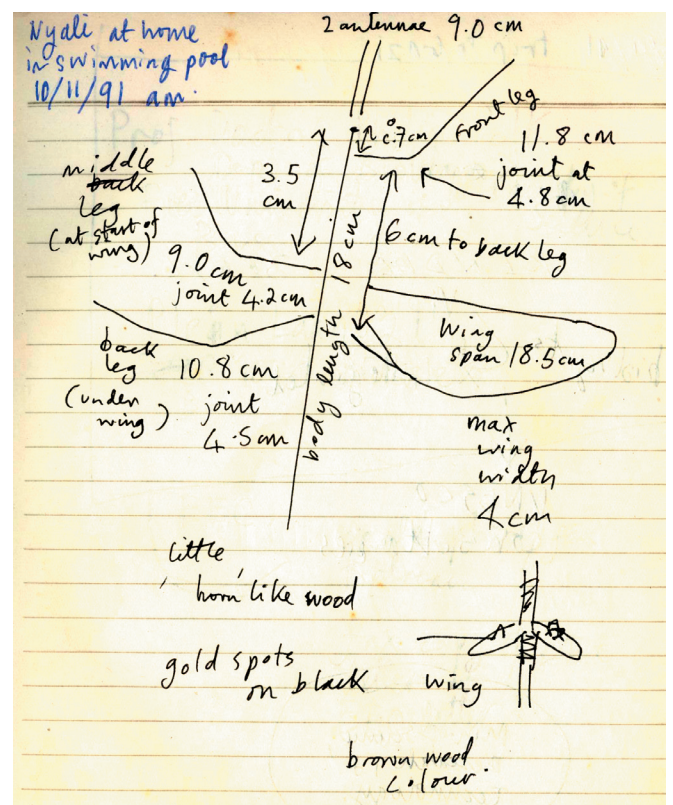 Nyali at home
in swimming pool
10/11/91 am.
2 antennae 9.0 cm
0.7cm
Front leg
11.8 cm
joint at
4.8cm
middle
back
leg
(at start of
wing)
3.5
cm
6 cm to back leg
9.0cm
joint 4.2cm
body length 18cm
Wing
span 18.5cm
back
leg
(under
wing)
10.8 cm
joint
4.5cm
max
wing
width
4 cm
little
'horn' like wood
gold spots
on black
wing
brown wood
colour.